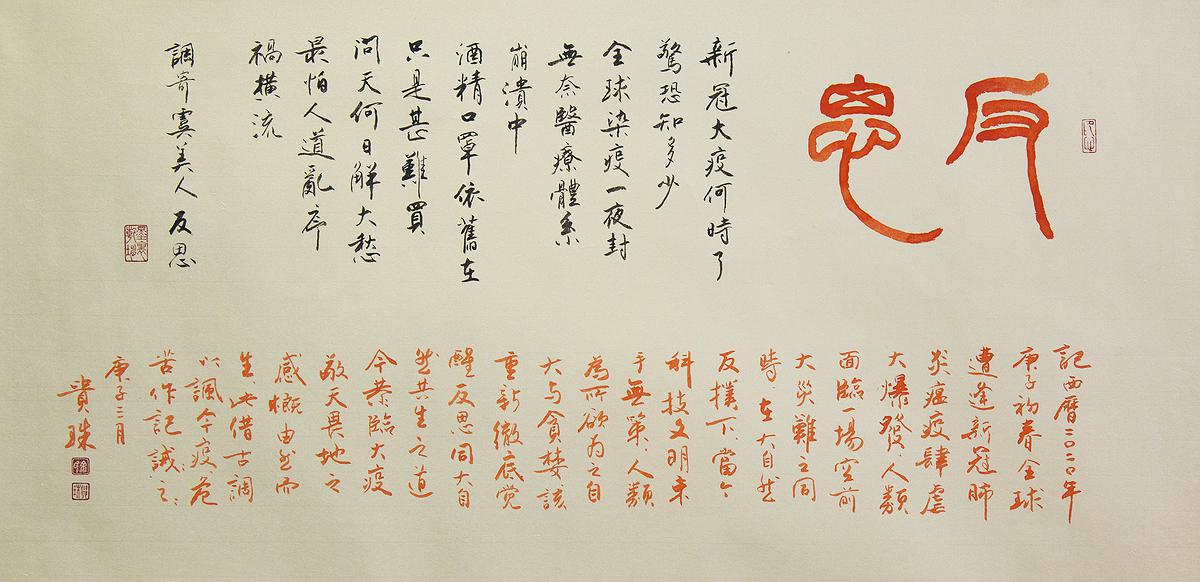 反思
新冠大疫何時了
驚恐知多少
全球染疫一夜封
無奈醫療體系
崩潰中
酒精口罩依舊在
只是甚難買
問天何日解大愁
最怕人道亂序
禍橫流
調寄虞美人 反思
記西曆二〇二〇年
庚子初春全球
遭逢新冠肺
炎瘟疫肆虐
大爆發、人類
面臨一場空前
大災難之同
時、在大自然
反撲下、當今
科技文明束
手無策、人類
為所欲為之自
大與貪婪該
重新徹底覺
醒反思同大自
然共生之道
今恭臨大疫
敬天畏地之
感概由然而
生、此借古調
以諷今疫危
苦作記誡之、
庚子三月
貴珠